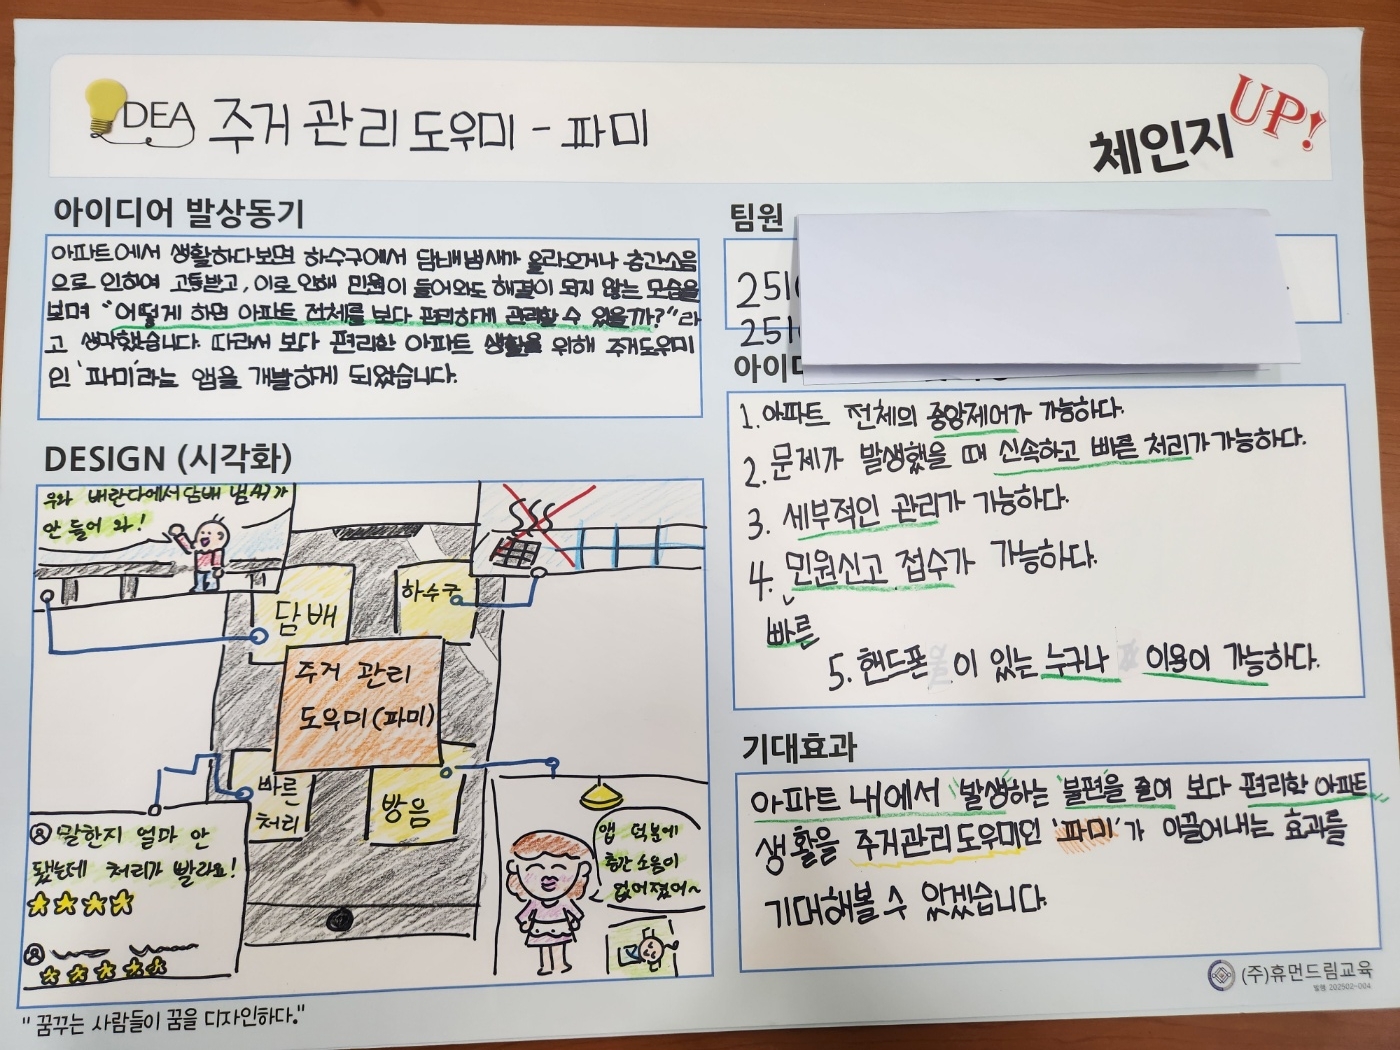 IDEA 주거 관리 도우미 - 파미
체인지 UP!
아이디어 발상동기
아파트에서 생활하다보면 하수구에서 담배냄새가 올라오거나 층간소음
으로 인하여 고통받고, 이로 인해 민원이 들어와도 해결이 되지 않는 모습을
보며 "어떻게 하면 아파트 전체를 보다 편리하게 관리할 수 있을까?"라
고 생각했습니다. 따라서 보다 편리한 아파트 생활을 위해 주거도우미
인 '파미'라는 앱을 개발하게 되었습니다.
팀원
251
251
아이디
1. 아파트 전체의 중앙제어가 가능하다.
2. 문제가 발생했을 때 신속하고 빠른 처리가 가능하다.
3. 세부적인 관리가 가능하다.
4. 민원신고 접수가 가능하다.
빠른
5. 핸드폰이 있는 누구나 이용이 가능하다.
DESIGN (시각화)
우와 베란다에서 담배 냄새가
안 들어 와!
담배
하수구
주거 관리
도우미(파미)
빠른
처리
방음
말한지 얼마 안
됐는데 처리가 빨라요!
앱 덕분에
층간소음이
없어졌어~
기대효과
아파트 내에서 발생하는 불편을 줄여 보다 편리한 아파트
생활을 주거관리도우미인 '파미'가 이끌어내는 효과를
기대해볼 수 있겠습니다.
(주)휴먼드림교육
발행 202502-004
"꿈꾸는 사람들이 꿈을 디자인하다."